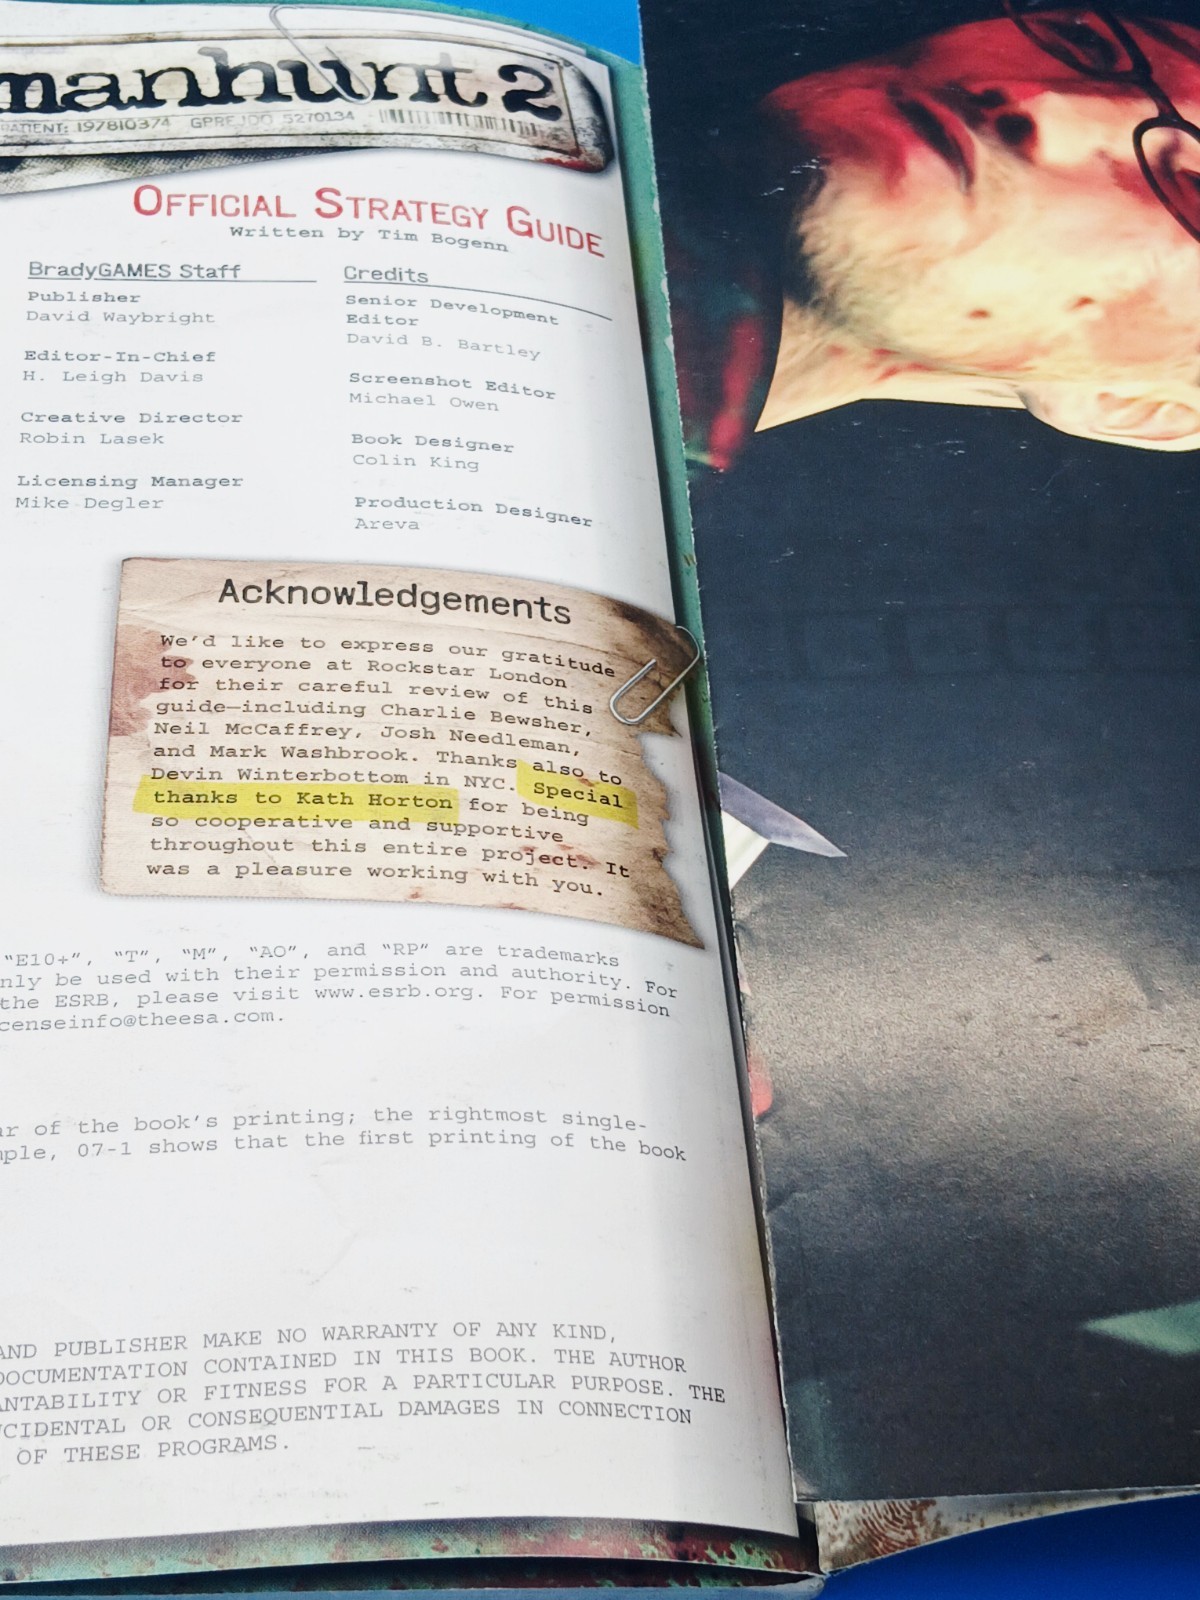 manhunt 2
PATIENT: 197810374 GPREJDO 5270134
OFFICIAL STRATEGY GUIDE
Written by Tim Bogenn
BradyGAMES Staff
Publisher
David Waybright
Editor-In-Chief
H. Leigh Davis
Creative Director
Robin Lasek
Licensing Manager
Mike Degler
Credits
Senior Development
Editor
David B. Bartley
Screenshot Editor
Michael Owen
Book Designer
Colin King
Production Designer
Areva
Acknowledgements
We'd like to express our gratitude
to everyone at Rockstar London
for their careful review of this
guide—including Charlie Bewsher,
Neil McCaffrey, Josh Needleman,
and Mark Washbrook. Thanks also to
Devin Winterbottom in NYC. Special
thanks to Kath Horton for being
so cooperative and supportive
throughout this entire project. It
was a pleasure working with you.
"E10+", "T", "M", "AO", and "RP" are trademarks
nly be used with their permission and authority. For
the ESRB, please visit www.esrb.org. For permission
censeinfo@theesa.com.
ar of the book's printing; the rightmost single-
mple, 07-1 shows that the first printing of the book
AND PUBLISHER MAKE NO WARRANTY OF ANY KIND,
DOCUMENTATION CONTAINED IN THIS BOOK. THE AUTHOR
ANTABILITY OR FITNESS FOR A PARTICULAR PURPOSE. THE
NCIDENTAL OR CONSEQUENTIAL DAMAGES IN CONNECTION
OF THESE PROGRAMS.